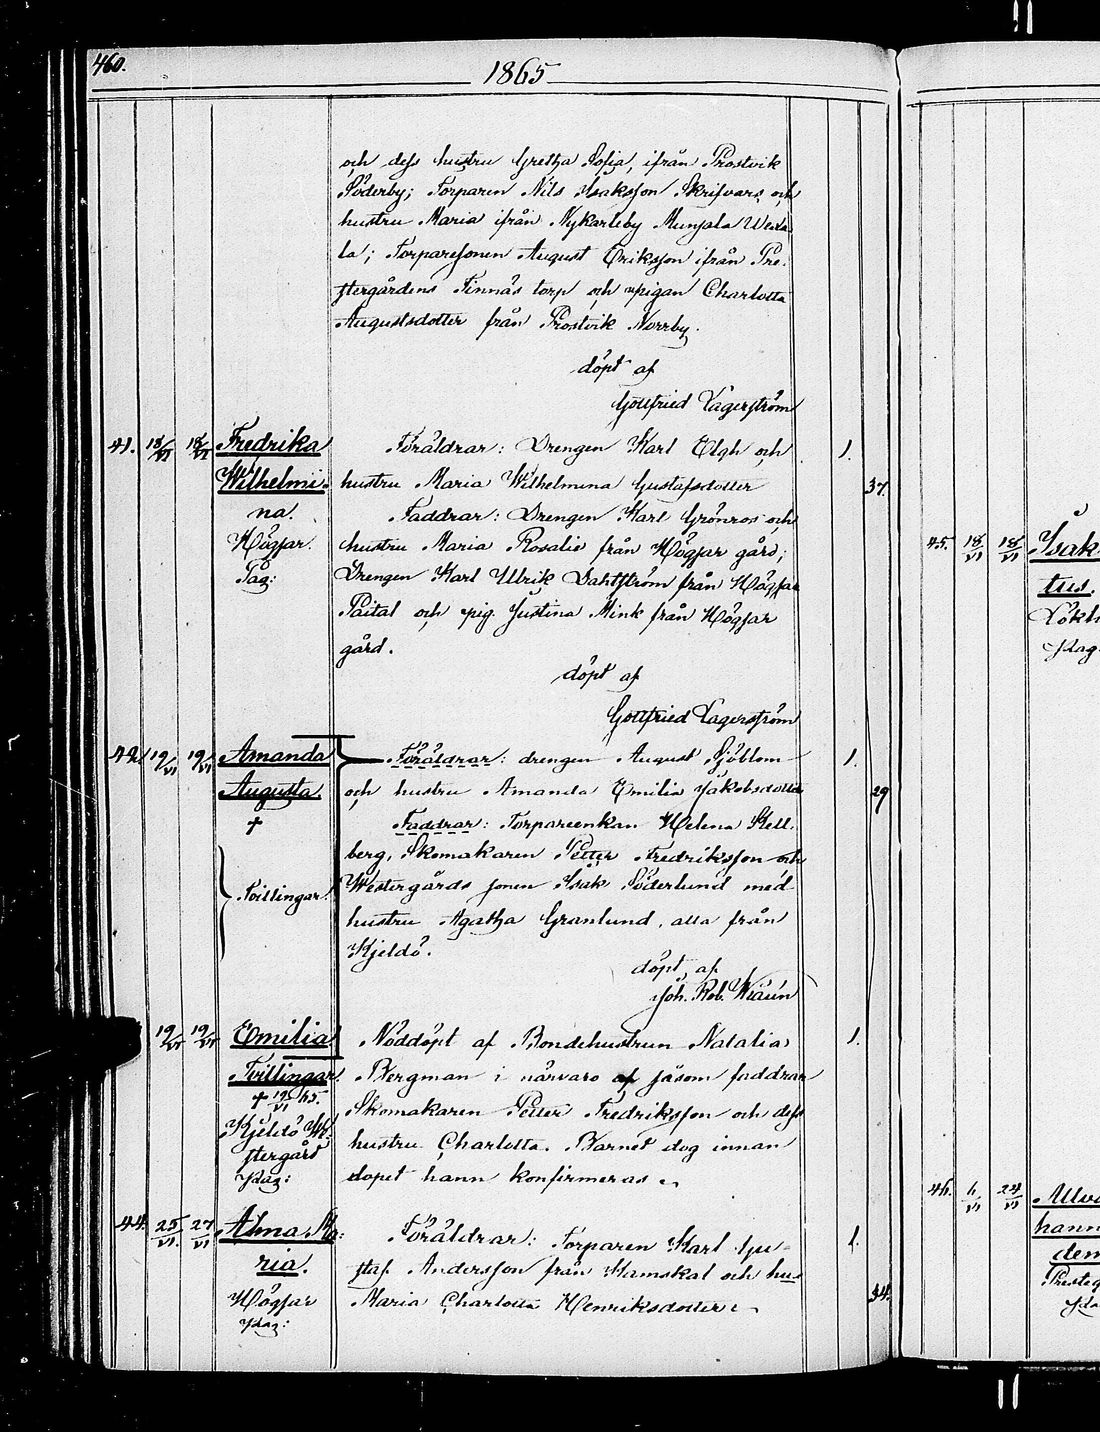 460.
1865
och dess hustru Gretha Sofia, ifrån Prostvik
Söderby; Torparen Nils Isaksson Skrifvars och
hustru Maria ifrån Nykarleby Munsala
la; Torparesonen August Eriksson ifrån Pre-
stergårdens Finnäs torp och pigan Charlotta
Augustsdotter från Prostvik Norrby.
döpt af
Gottfried Lagerström
41. 18/VI 18/VI Fredrika Föräldrar: Drengen Karl Elgh och 1.
Wilhelmi- hustru Maria Wilhelmina Gustafsdotter 37.
na. Faddrar: Drengen Karl Grönroos och
Högsar. hustru Maria Rosalie från Högsar gård;
Pag: Drengen Karl Ulrik Dahlström från Högsar
och pig. Justina Mink från Högsar
gård.
döpt af
Gottfried Lagerström
42. 19/VI 19/VI Amanda Föräldrar: drengen August Sjöblom 1.
Augusta. och hustru Amanda Emilia Jakobsdotter 29
† Faddrar: Torpareenkan Helena Kell-
berg, Skomakaren Petter Fredriksson och
Westergårds sonen Isak Söderlund med
Tvillingar. hustru Agatha Granlund, alla från
Kjeldö.
döpt af
Joh. Rob.
19/VI 19/VI Emilia Nöddöpt af Bondehustrun Natalia 1.
Tvillingar. Bergman i närvaro af såsom faddrar
† 19/VI 65. Skomakaren Petter Fredriksson och dess
Kjeldö We- hustru Charlotta. Barnet dog innan
stergård dopet hann konfirmeras.
44. 25/VI. 27/VI Alma Ma- Föräldrar: Torparen Karl Gu- 1.
ria. staf Andersson från Hamskal och hus
Högsar Maria Charlotta Henriksdotter 34.
45. 18/VI 18/VI Isak
tus.
46. 6/VI 24/VI
hann
dem